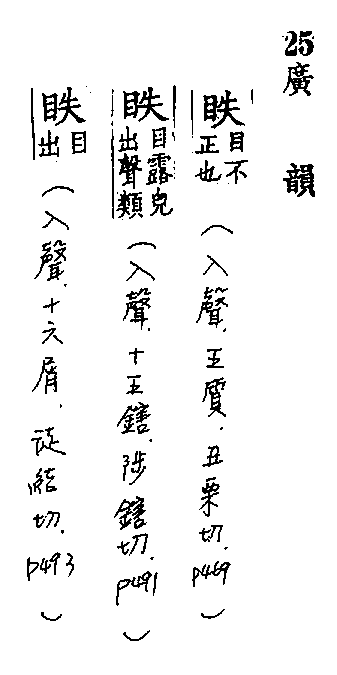 25廣韻
眣目不正也(入聲.五質.丑栗切.p469)
眣目露皃出聲類(入聲.十五鎋.陟鎋切.p491)
眣目出(入聲.十六屑.徒結切.p493)